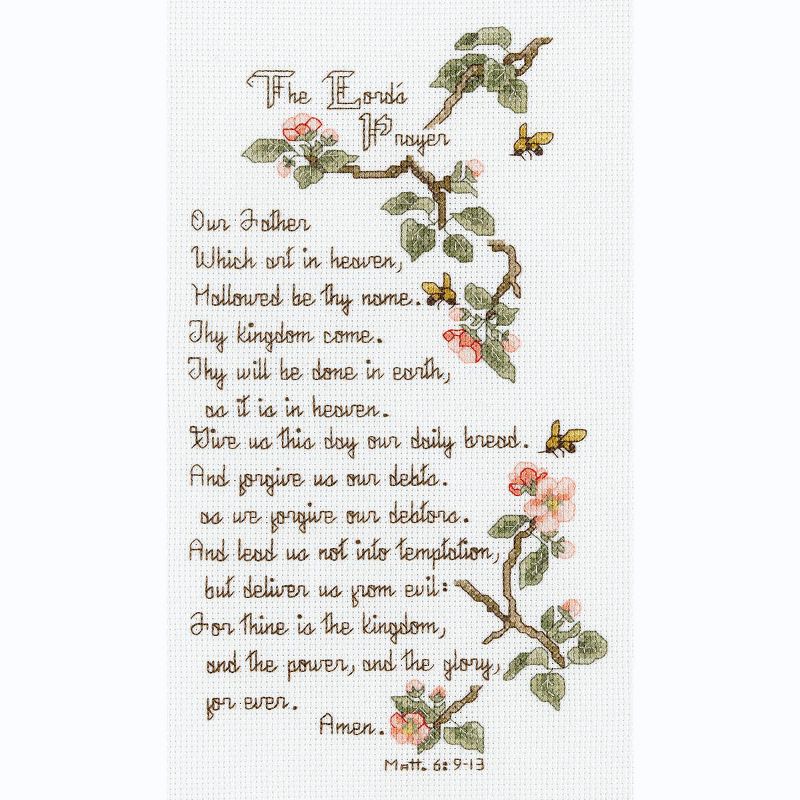 The Lord's
Prayer
Our Father
Which art in heaven,
Hallowed be thy name.
Thy kingdom come.
Thy will be done in earth,
as it is in heaven.
Give us this day our daily bread.
And forgive us our debts.
as we forgive our debtors.
And lead us not into temptation,
but deliver us from evil:
For thine is the kingdom,
and the power, and the glory,
for ever.
Amen.
Matt. 6:9-13